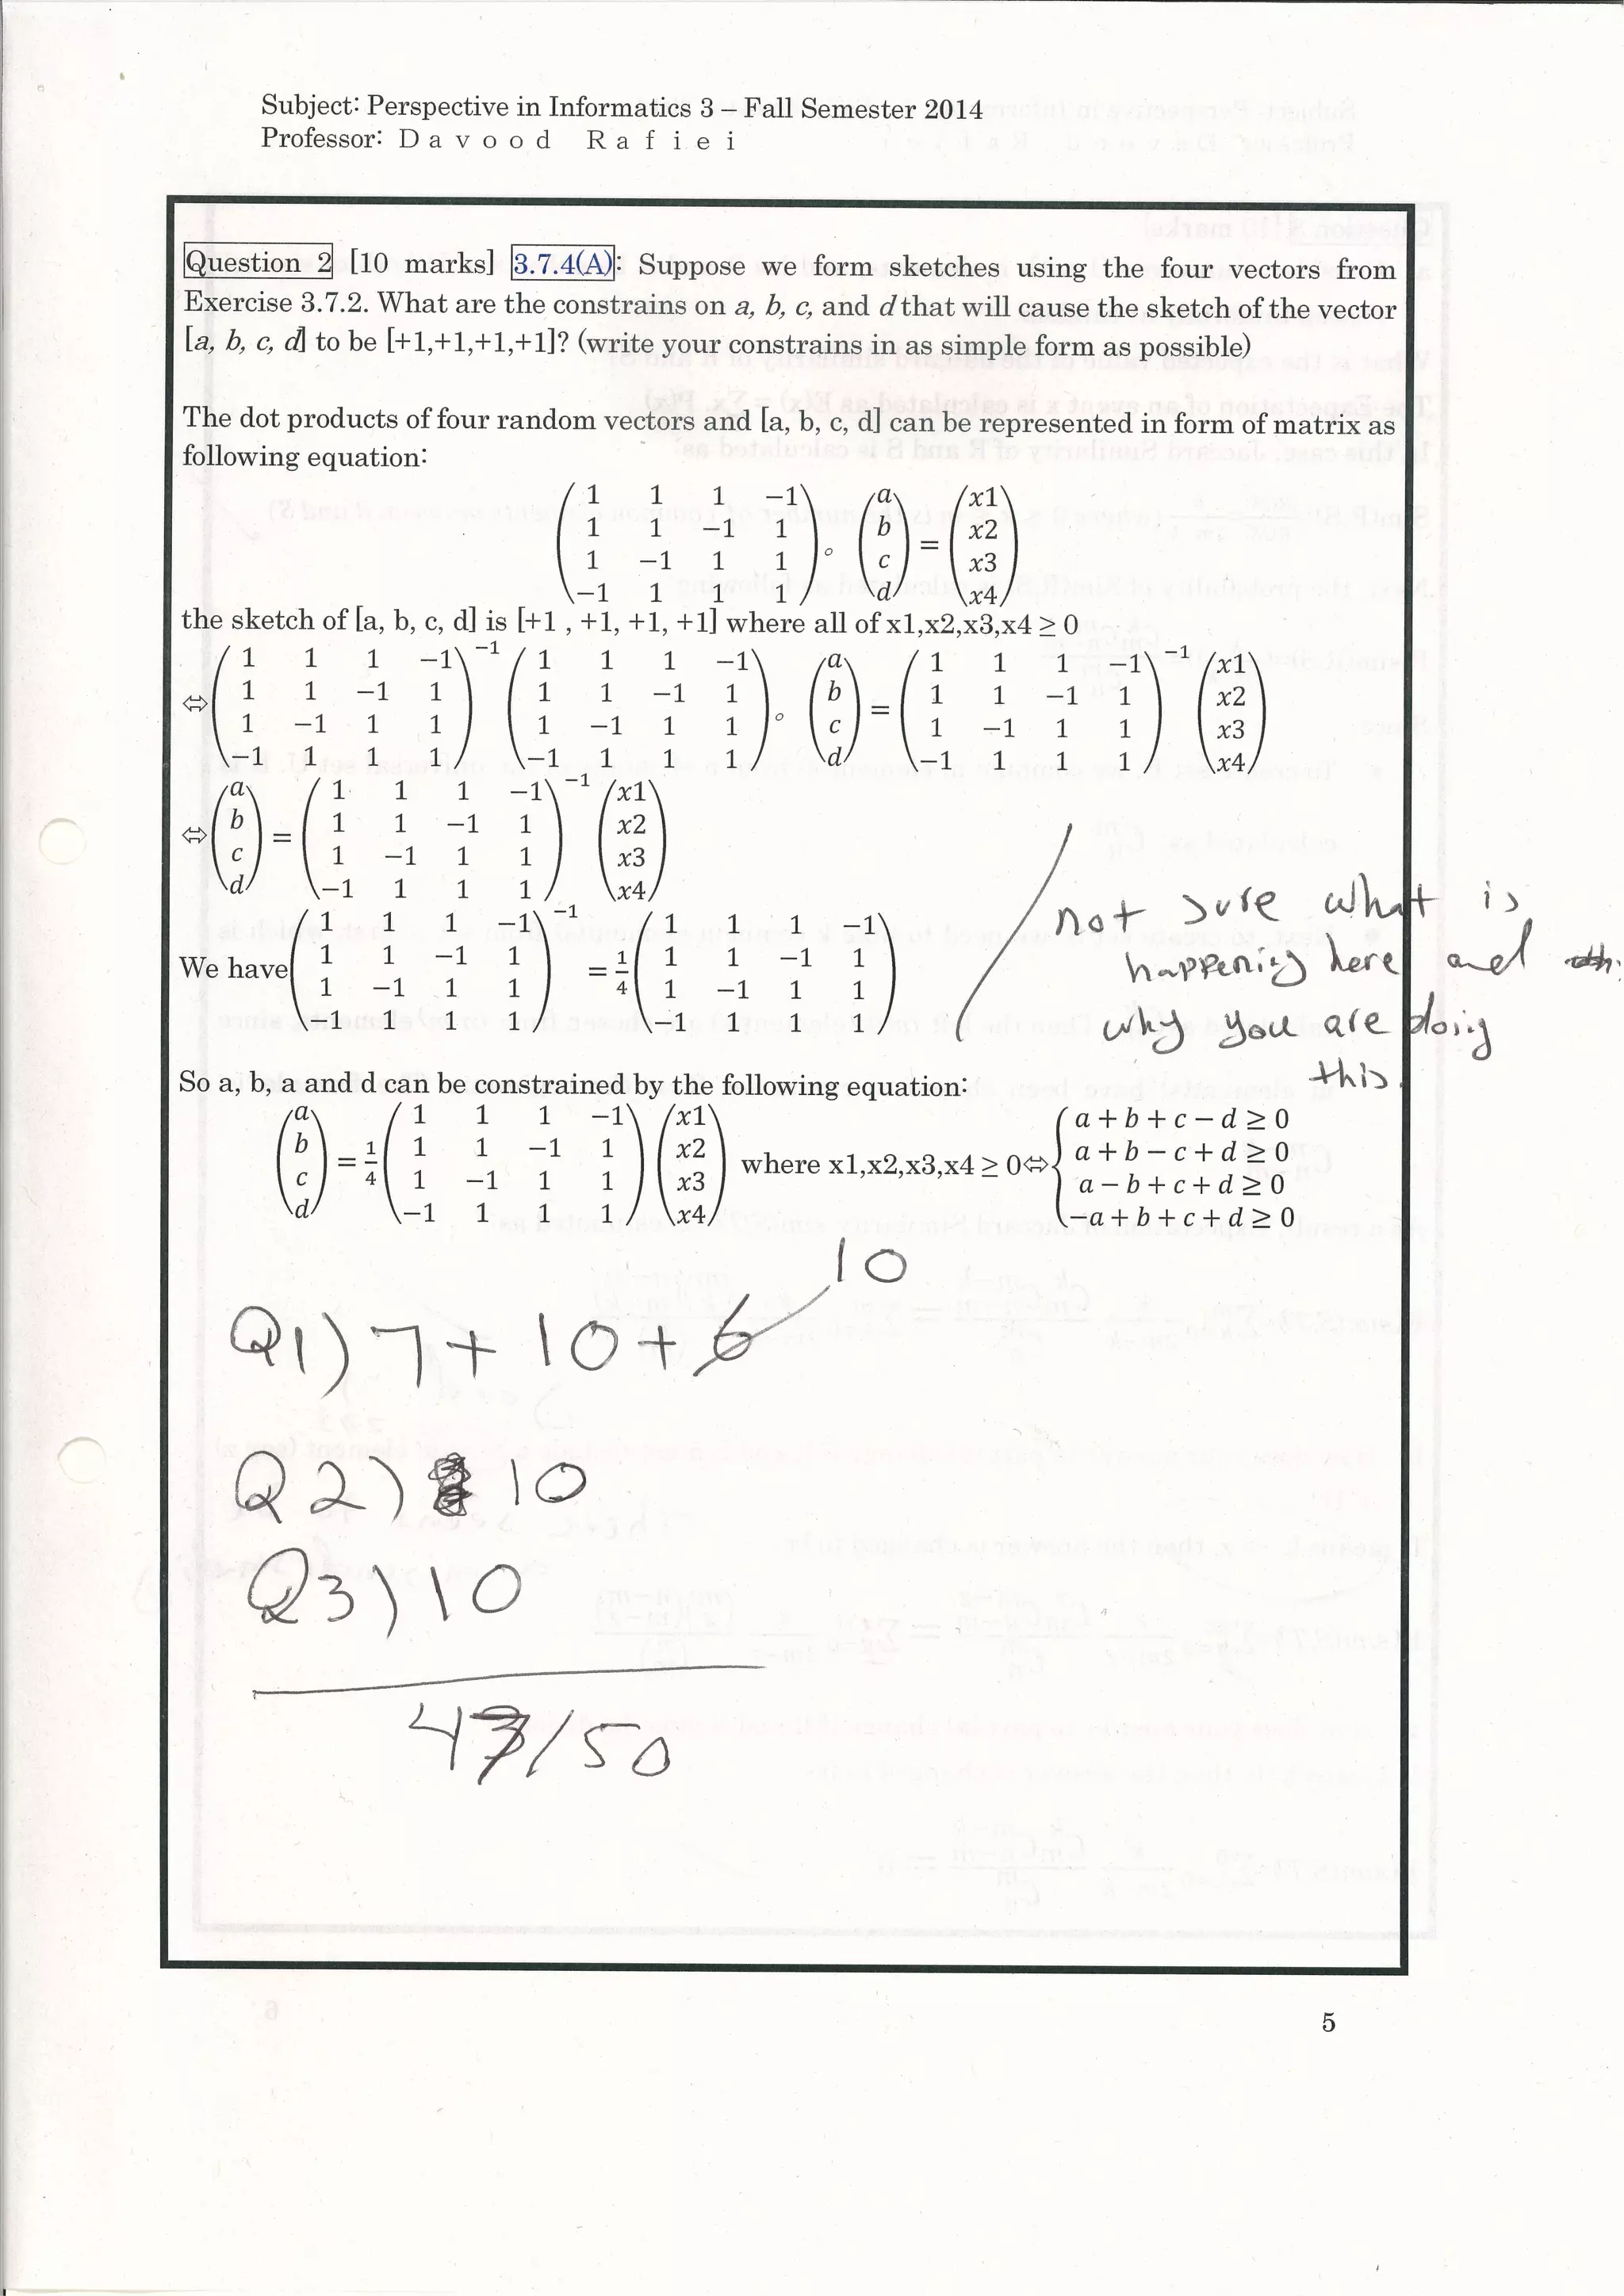 Subject: Perspective in Informatics 3 – Fall Semester 2014
Professor: D a v o o d R a f i e i
Question 2 [10 marks] 3.7.4(A): Suppose we form sketches using the four vectors from
Exercise 3.7.2. What are the constrains on a, b, c, and d that will cause the sketch of the vector
[a, b, c, d] to be [+1,+1,+1,+1]? (write your constrains in as simple form as possible)
The dot products of four random vectors and [a, b, c, d] can be represented in form of matrix as
following equation:
1 1 1 −1 a x1
1 1 −1 1 b x2
1 −1 1 1 ∘ c = x3
−1 1 1 1 d x4
the sketch of [a, b, c, d] is [+1 , +1, +1, +1] where all of x1,x2,x3,x4 ≥ 0
1 1 1 −1 −1 1 1 1 −1 a 1 1 1 −1 −1 x1
⇔ 1 1 −1 1 1 1 −1 1 b = 1 1 −1 1 x2
1 −1 1 1 1 −1 1 1 ∘ c 1 −1 1 1 x3
−1 1 1 1 −1 1 1 1 d −1 1 1 1 x4
a 1 1 1 −1 −1 x1
⇔ b = 1 1 −1 1 x2
c 1 −1 1 1 x3
d −1 1 1 1 x4
1 1 1 −1 −1 1 1 1 −1
We have 1 1 −1 1 = 1/4 1 1 −1 1
1 −1 1 1 1 −1 1 1
−1 1 1 1 −1 1 1 1
not sure what is
happening here and
why you are doing
this.
So a, b, a and d can be constrained by the following equation:
a 1 1 1 −1 x1 a + b + c − d ≥ 0
b = 1/4 1 1 −1 1 x2 where x1,x2,x3,x4 ≥ 0⇔ a + b − c + d ≥ 0
c 1 −1 1 1 x3 a − b + c + d ≥ 0
d −1 1 1 1 x4 −a + b + c + d ≥ 0
10
Q1) 7 + 10 + 6
Q2) 10
Q3) 10
47/50
5